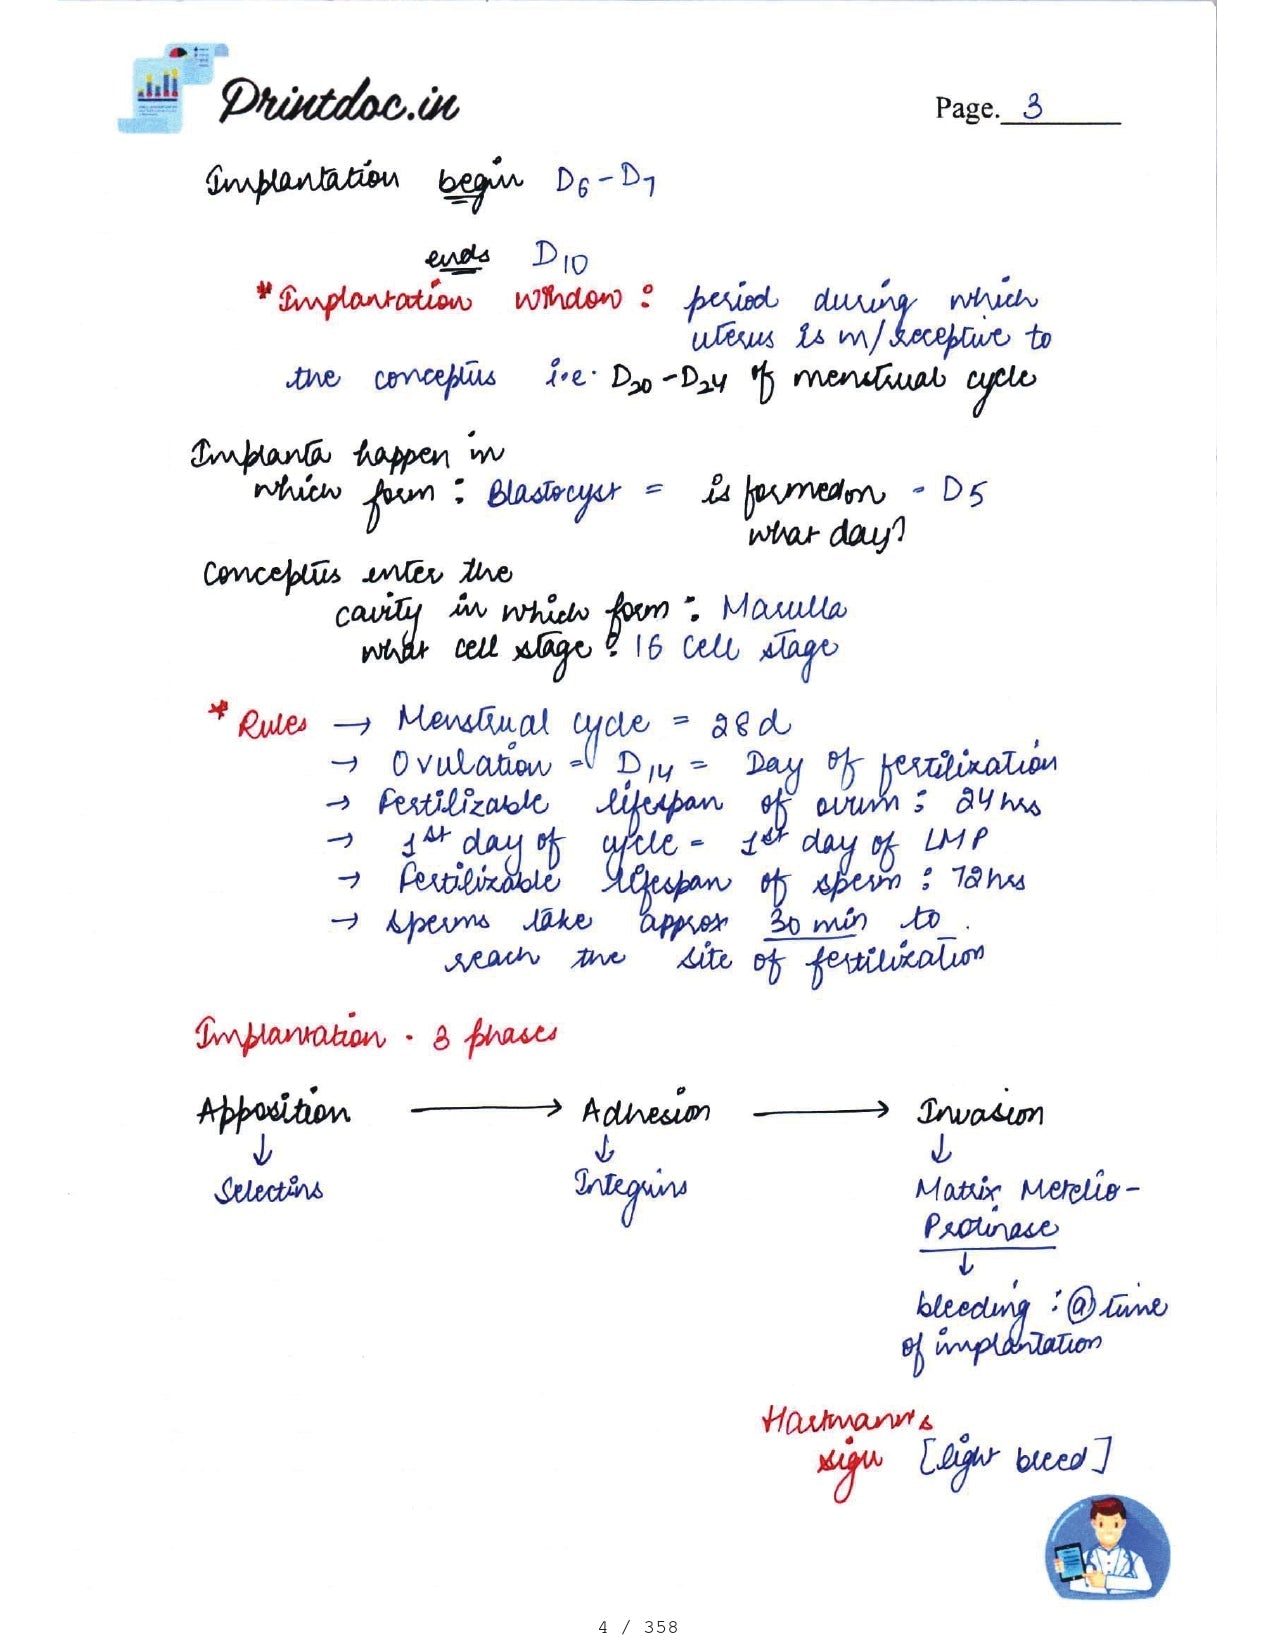 Printdoc.in
Page. 3
Implantation begin D6-D7
ends D10
*Implantation window: period during which
uterus is m/receptive to
the conceptus i.e. D20-D24 of menstrual cycle
Implanta happen in
which form: Blastocyst = is formed on - D5
what day?
Conceptus enter the
cavity in which form: Marulla
what cell stage: 16 cell stage
* Rules → Menstrual cycle = 28d
→ Ovulation = D14 = Day of fertilization
→ Fertilizable lifespan of ovum: 24 hrs
→ 1st day of cycle = 1st day of LMP
→ Fertilizable lifespan of sperm: 72 hrs
→ Sperms take approx 30 min to
reach the site of fertilization
Implantation . 3 phases
Apposition → Adhesion → Invasion
↓ ↓ ↓
Selectins Integrins Matrix Metello-
Protinase
↓
bleeding: @ time
of implantation
Hartmann's
sign [light bleed]
4 / 358